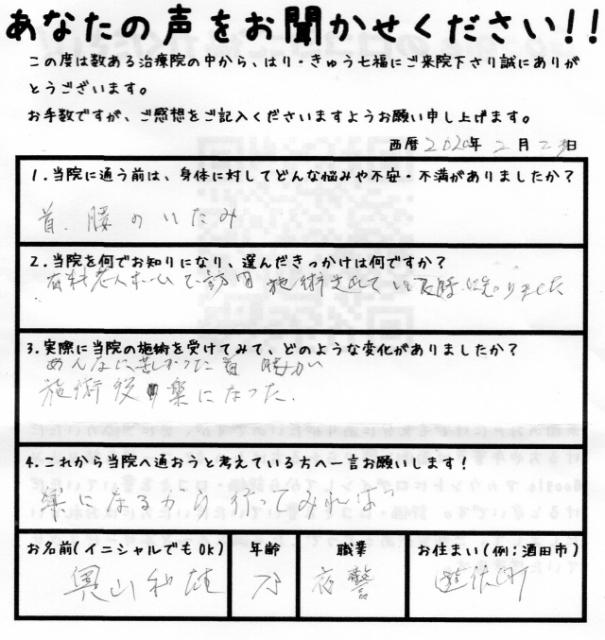 あなたの声をお聞かせください!!
この度は数ある治療院の中から、はり・きゅう七福にご来院下さり誠にありが
とうございます。
お手数ですが、ご感想をご記入くださいますようお願い申し上げます。
西暦2020年 2月 23日
1.当院に通う前は、身体に対してどんな悩みや不安・不満がありましたか?
首、腰のいたみ
2.当院を何でお知りになり、選んだきっかけは何ですか?
有料老人ホームで訪問施術されている時に知りました
3.実際に当院の施術を受けてみて、どのような変化がありましたか?
あんなに苦しかった首 腰が
施術後 楽になった.
4.これから当院へ通おうと考えている方へ一言お願いします!
楽になるから行ってみれば
お名前(イニシャルでもOK) 年齢 職業 お住まい(例:酒田市)
奥山和雄 夜警 遊佐町